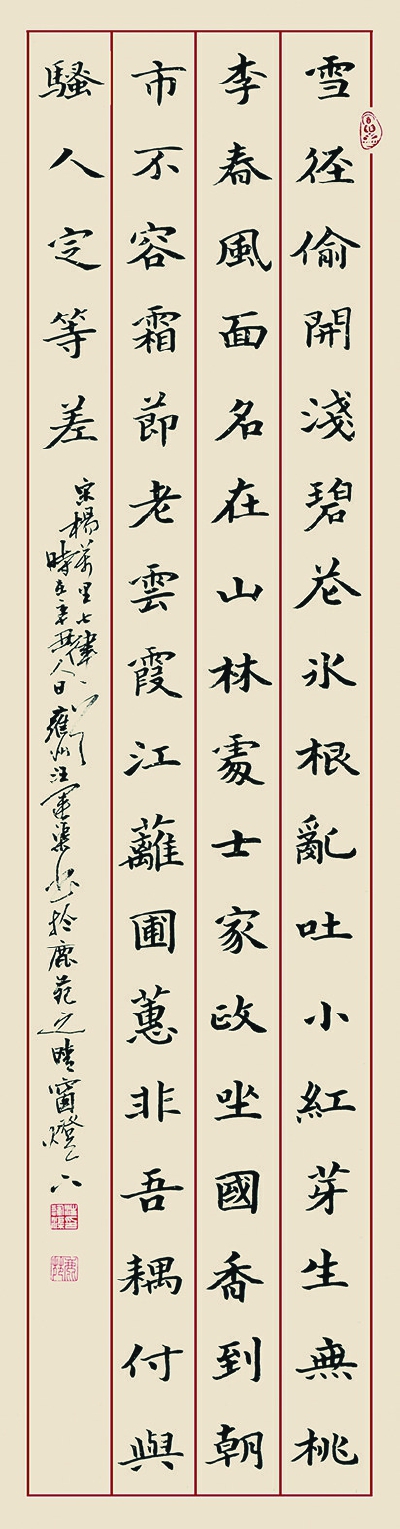 雪徑偷開淺碧花氷根亂吐小紅芽生無桃
李春風面名在山林處士家政坐國香到朝
市不容霜節老雲霞江蘺圃蕙非吾耦付與
騷人定等差
宋楊萬里七律
時在辛丑人日雍州汪運渠書於鹿苑之晴窗燈下